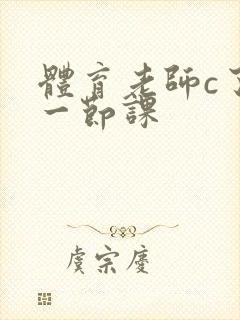 體育老師c了
一節課
虞宗慶